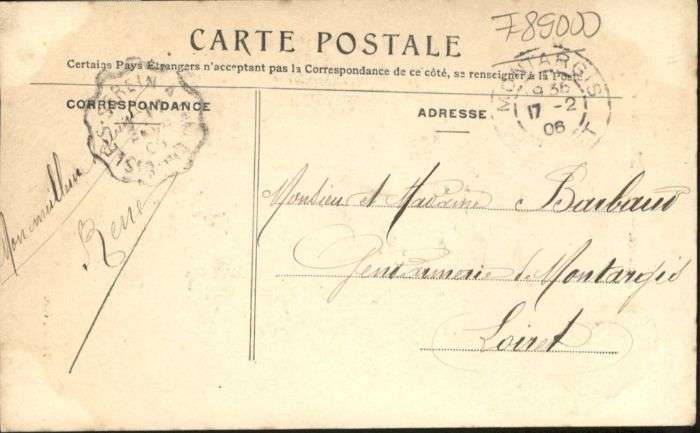 789000
CARTE POSTALE
Certains Pays Étrangers n'acceptant pas la Correspondance de ce côté, se renseigner à la Poste
CORRESPONDANCE
ADRESSE
MONTARGIS
9 35
17 -2
06
Monsieur et Madame Barbaud
Gendarmerie de Montargis
Loiret